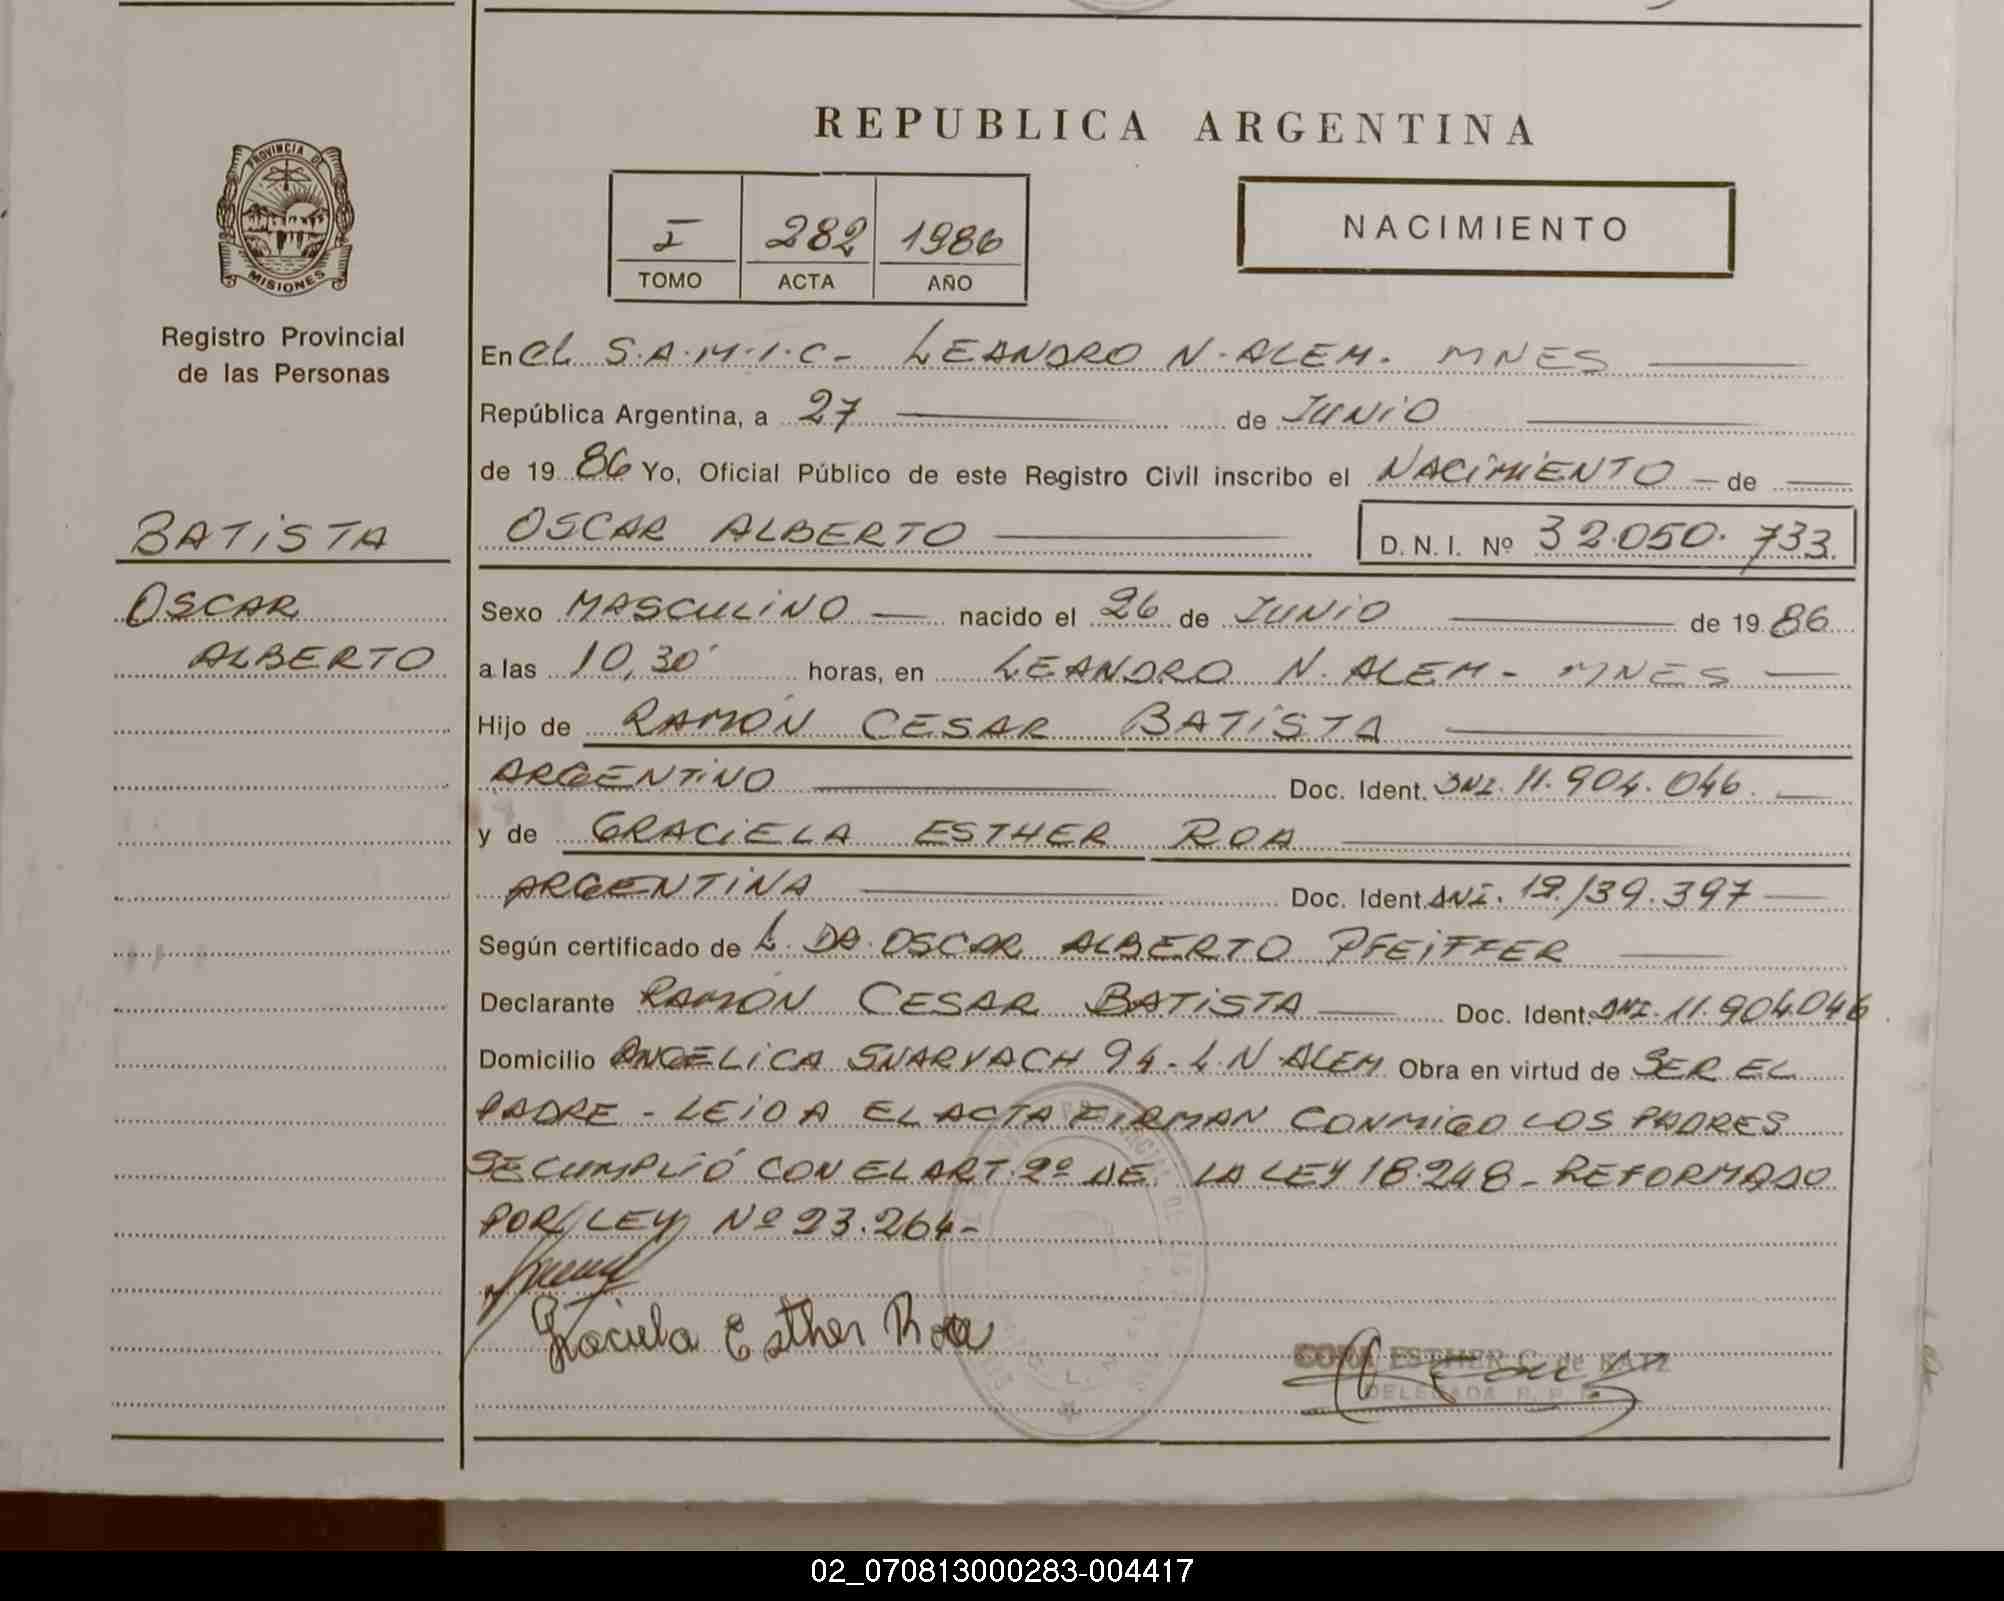 REPUBLICA ARGENTINA
PROVINCIA DE
MISIONES
Registro Provincial
de las Personas
BATISTA
OSCAR
ALBERTO
I 282 1986
TOMO ACTA AÑO
NACIMIENTO
En el S.A.M.I.C- LEANDRO N. ALEM. MNES
República Argentina, a 27 de JUNIO
de 1986 Yo, Oficial Público de este Registro Civil inscribo el NACIMIENTO de
OSCAR ALBERTO D. N. I. Nº 32.050.733
Sexo MASCULINO nacido el 26 de JUNIO de 1986
a las 10,30' horas, en LEANDRO N. ALEM - MNES
Hijo de RAMON CESAR BATISTA
ARGENTINO Doc. Ident. DNI. 11.904.046.
y de GRACIELA ESTHER ROA
ARGENTINA Doc. Ident. DNI.
Según certificado de OSCAR ALBERTO PFEIFFER
Declarante RAMON CESAR BATISTA Doc. Ident. DNI. 11.904.046
Domicilio ANGELICA 94 - L. N. ALEM Obra en virtud de SER EL
PADRE - LEIDA EL ACTA FIRMAN CONMIGO LOS PADRES
SE CUMPLIÓ CON EL ART. 2º DE LA LEY 18248 - REFORMADO
POR LEY Nº 23.264-
Graciela Esther Roa
ESTHER C. de KATZ
DELEGADA R. P.
02_070813000283-004417